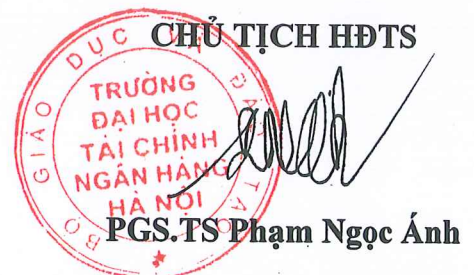 CHỦ TỊCH HĐTS
BỘ GIÁO DỤC VÀ ĐÀO TẠO
TRƯỜNG
ĐẠI HỌC
TÀI CHÍNH
NGÂN HÀNG
HÀ NỘI
PGS.TS Phạm Ngọc Ánh